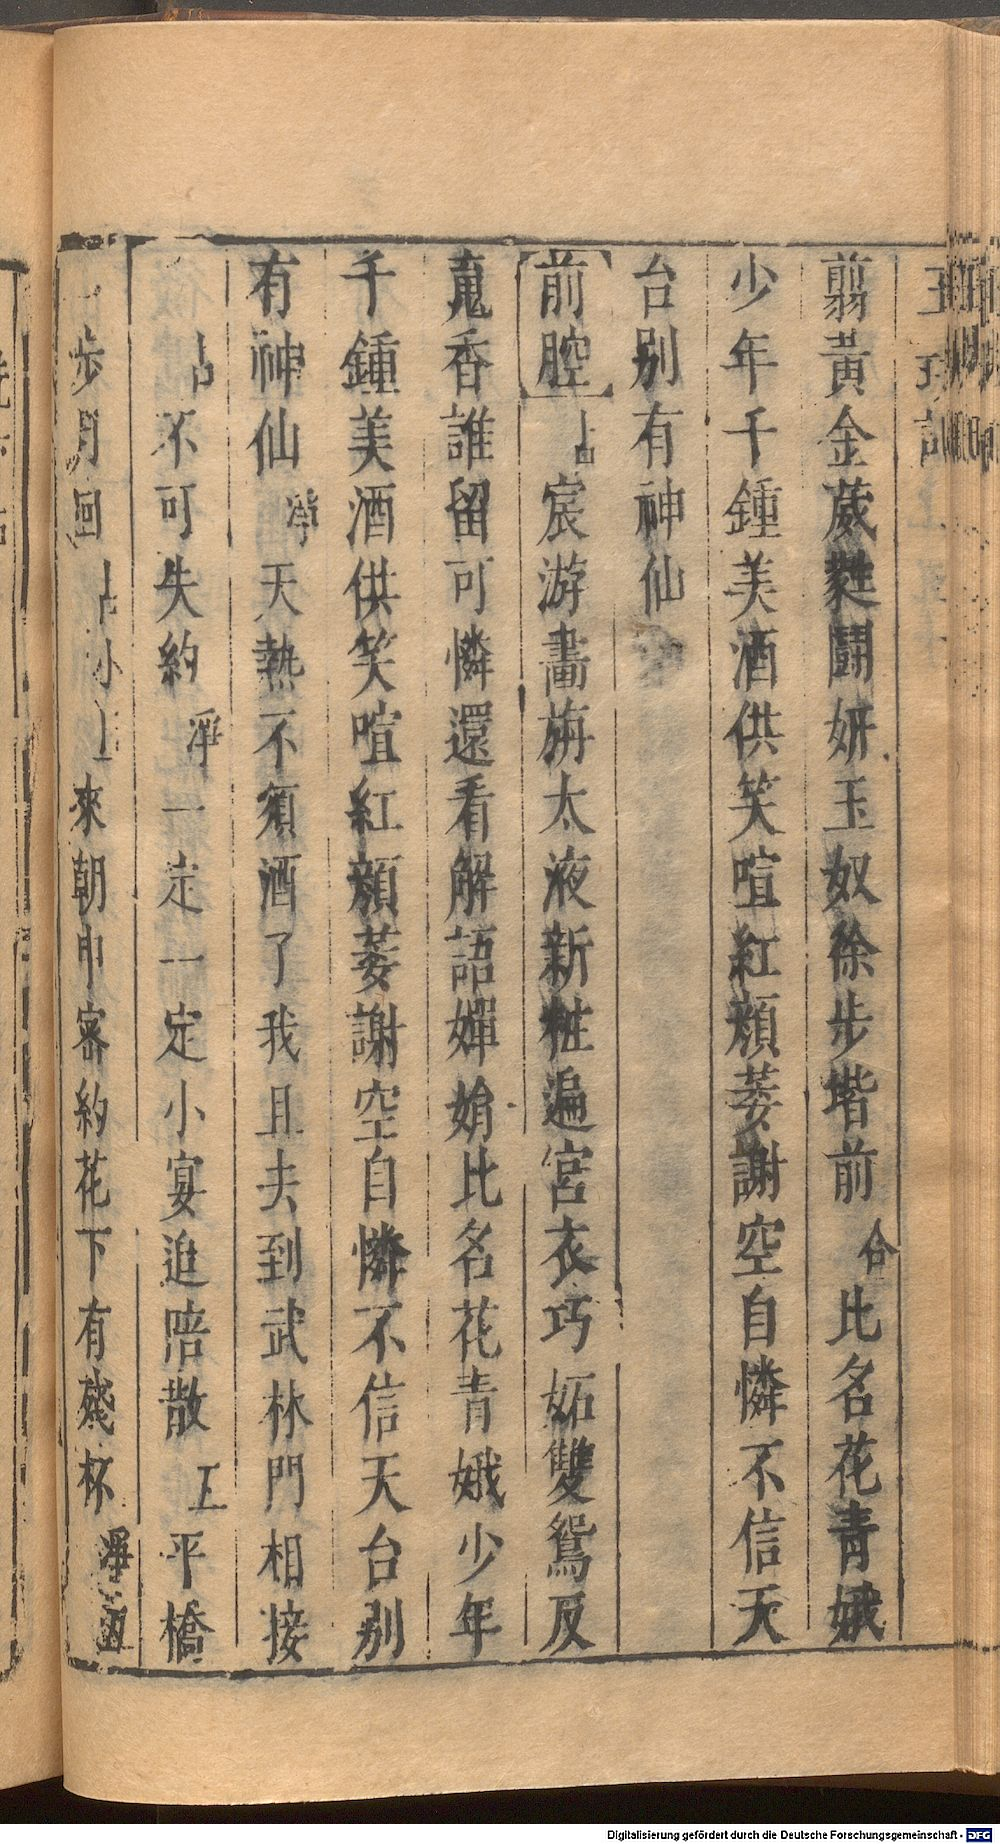 翦黃金葳蕤鬪妍玉奴徐步堦前合比名花青娥
少年千鍾美酒供笑喧紅顏萎謝空自憐不信天
台别有神仙
前腔占宸游畵旃太液新粧遍宮衣巧妬雙鴛反
䰟香誰留可憐還看解語嬋娟比名花青娥少年
千鍾美酒供笑喧紅顏萎謝空自憐不信天台别
有神仙淨天熱不須酒了我且去到武林門相接
占不可失約淨一定一定小宴追陪散丄平橋
步月回占小丄來朝申審約花下有殘杯淨
Digitalisierung gefördert durch die Deutsche Forschungsgemeinschaft - DFG